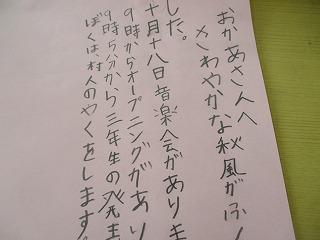 おかあさんへ
さわやかな秋風がふ
した。
十月十八日音楽会がありま
9時からオープニングがあり
9時5分から三年生の発表
ぼくは、村人のやくをします。